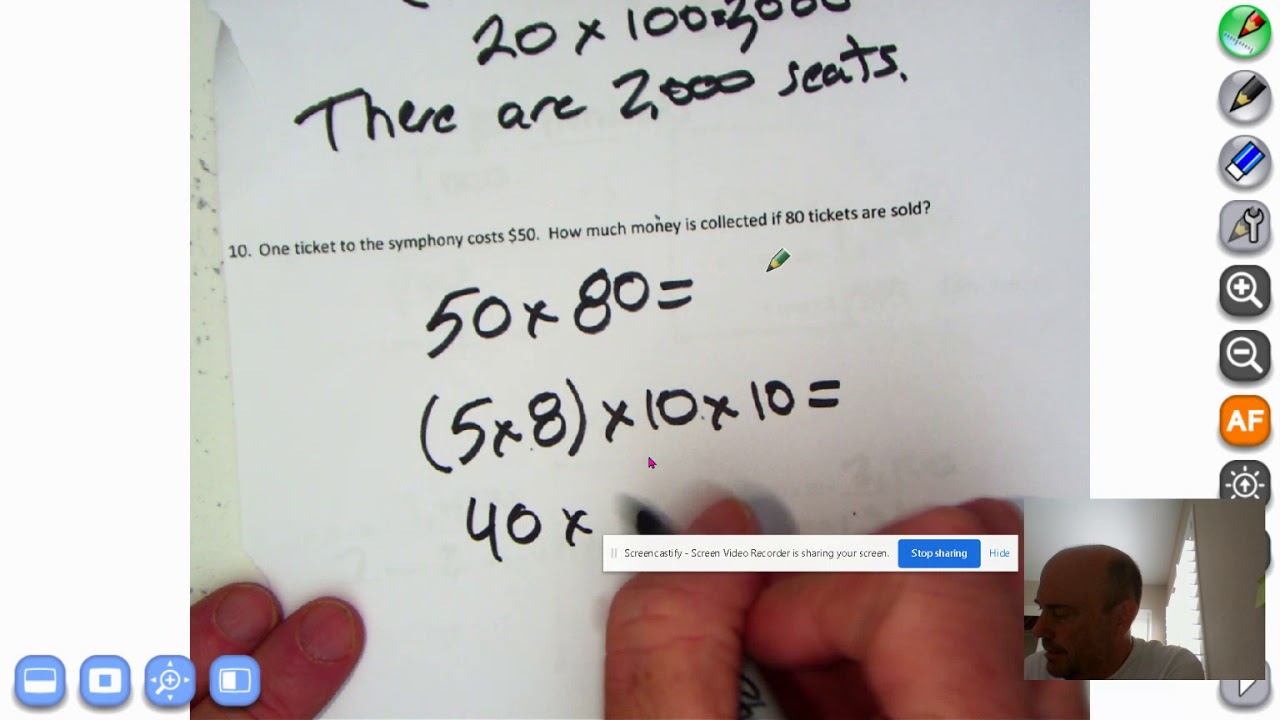 20 x 100=2,000
There are 2,000 seats.
10. One ticket to the symphony costs $50. How much money is collected if 80 tickets are sold?
50 x 80=
(5x8) x 10 x 10 =
40 x
AF
Screencastify - Screen Video Recorder is sharing your screen.
Stop sharing
Hide